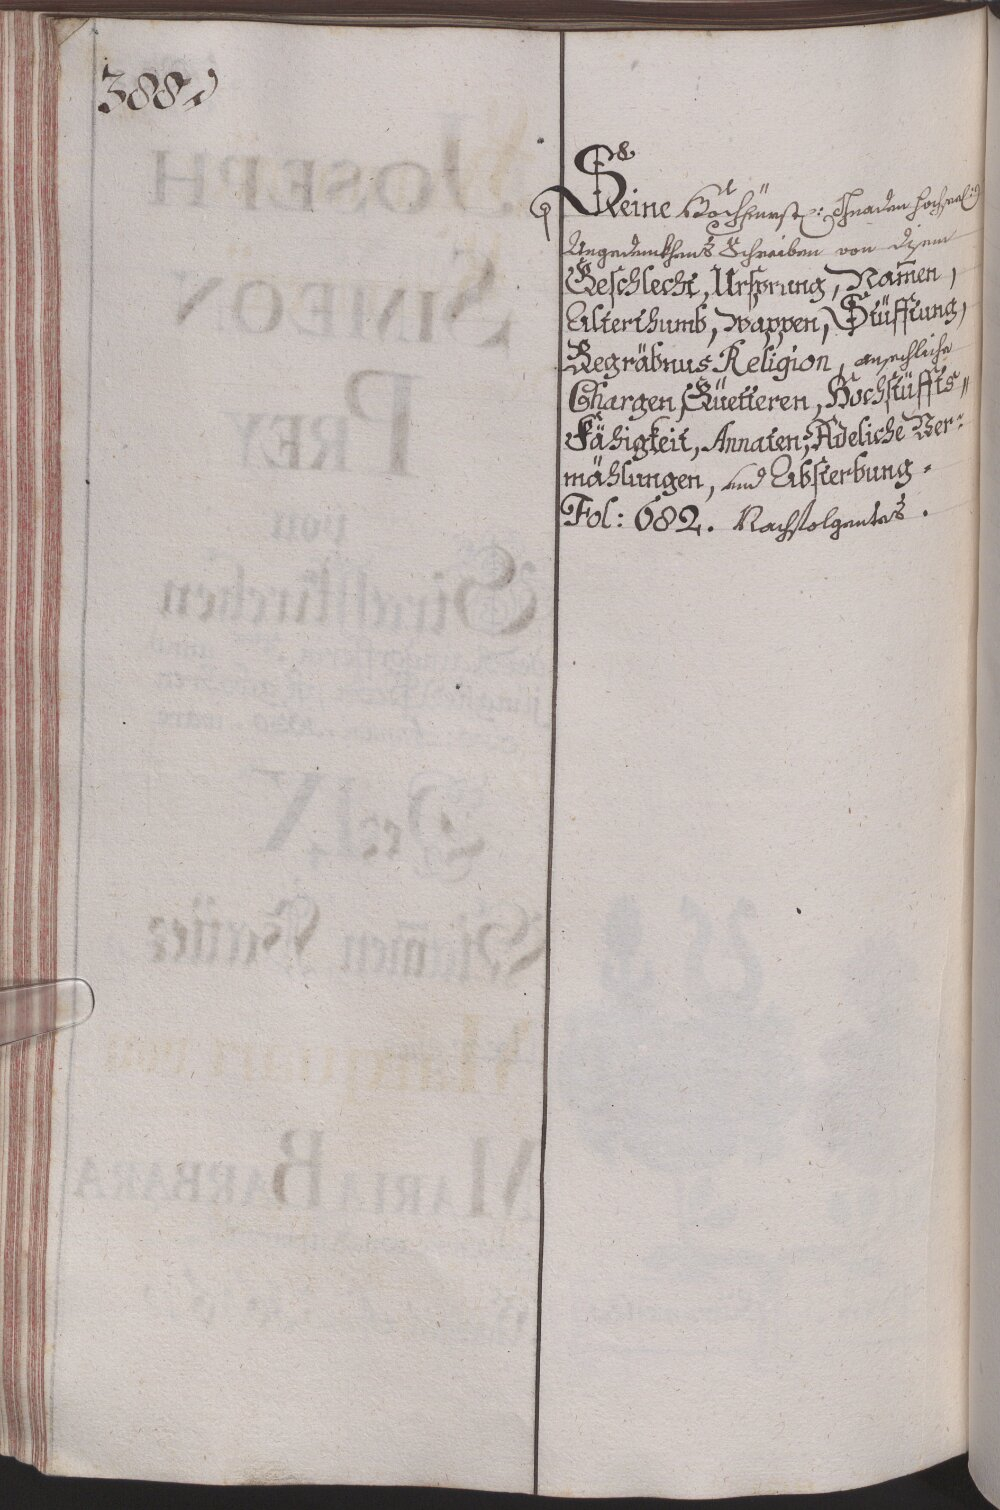 388
Seine Hochfürstl: Gnaden hochseel:
Angedenkhens Schreiben von disem
Geschlecht, Ursprung, Namen,
Alterthumb, Wappen, Stüfftung,
Begräbnus Religion, ansechliche
Chargen, Güetteren, Hochstüffts„
Fähigkeit, Annaten, Adeliche Ver:
mählungen, und Absterbung.
Fol: 682. Nachfolgentes.